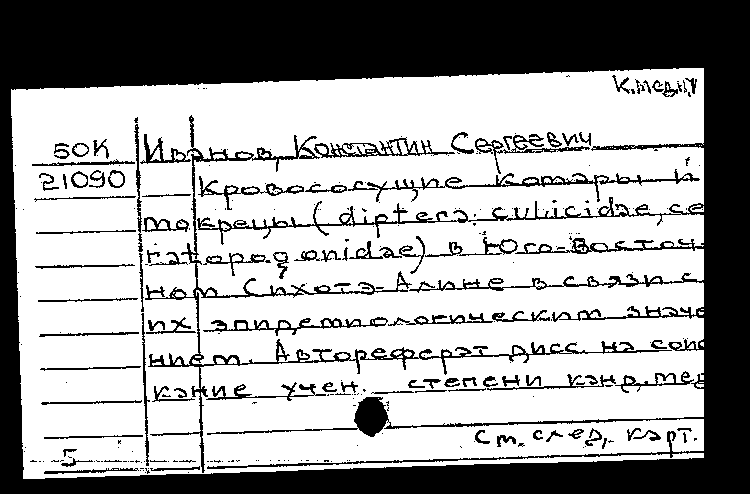 К.мед.н
50К Иванов, Константин Сергеевич
21090 Кровососущие комары и
мокрецы (diptera. culicidae, ce
ratopogonidae) в Юго-Восточ-
ном Сихотэ-Алине в связи с
их эпидемиологическим значе
нием. Автореферат дисс. на соис
кание учен. степени канд. мед
См. след. карт.
5